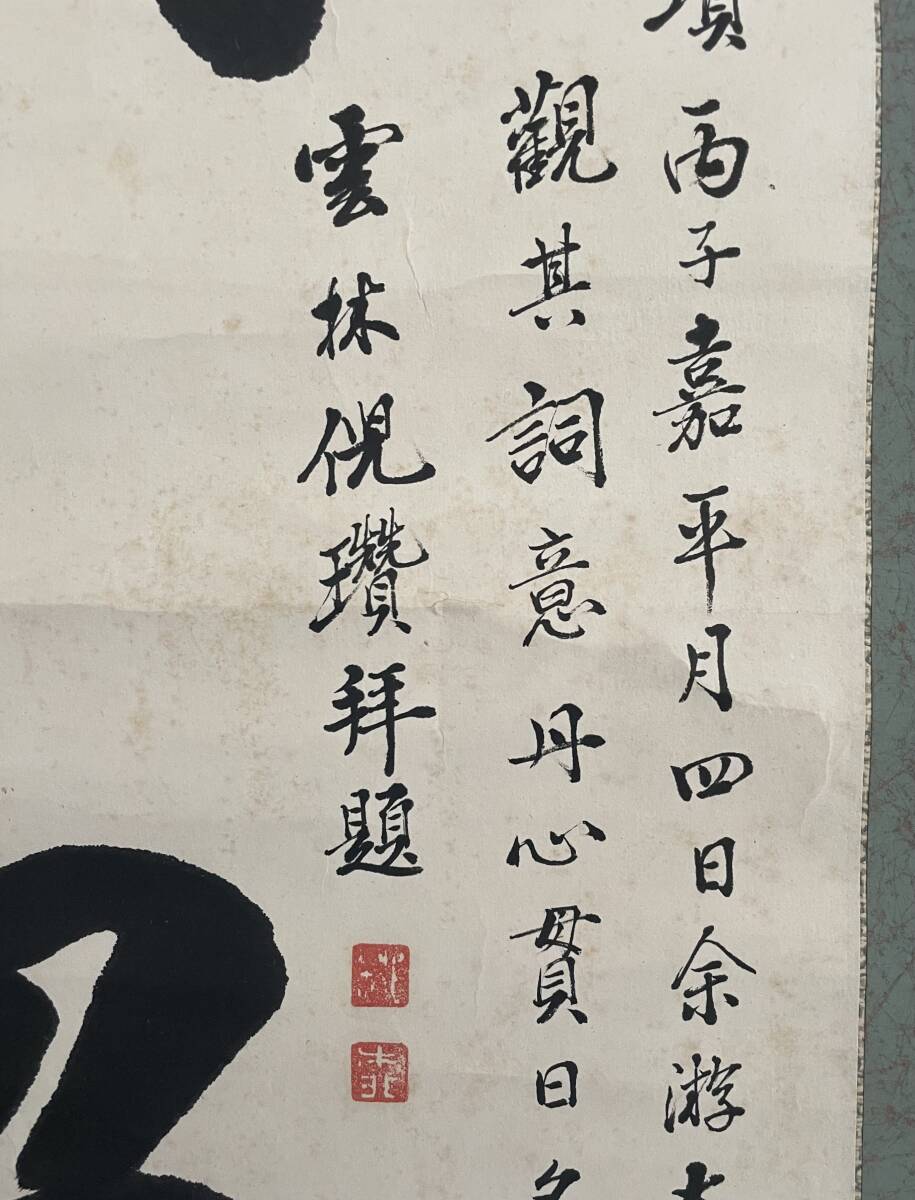 丙子嘉平月四日余游
觀其詞意丹心貫日
雲林倪瓚拜題